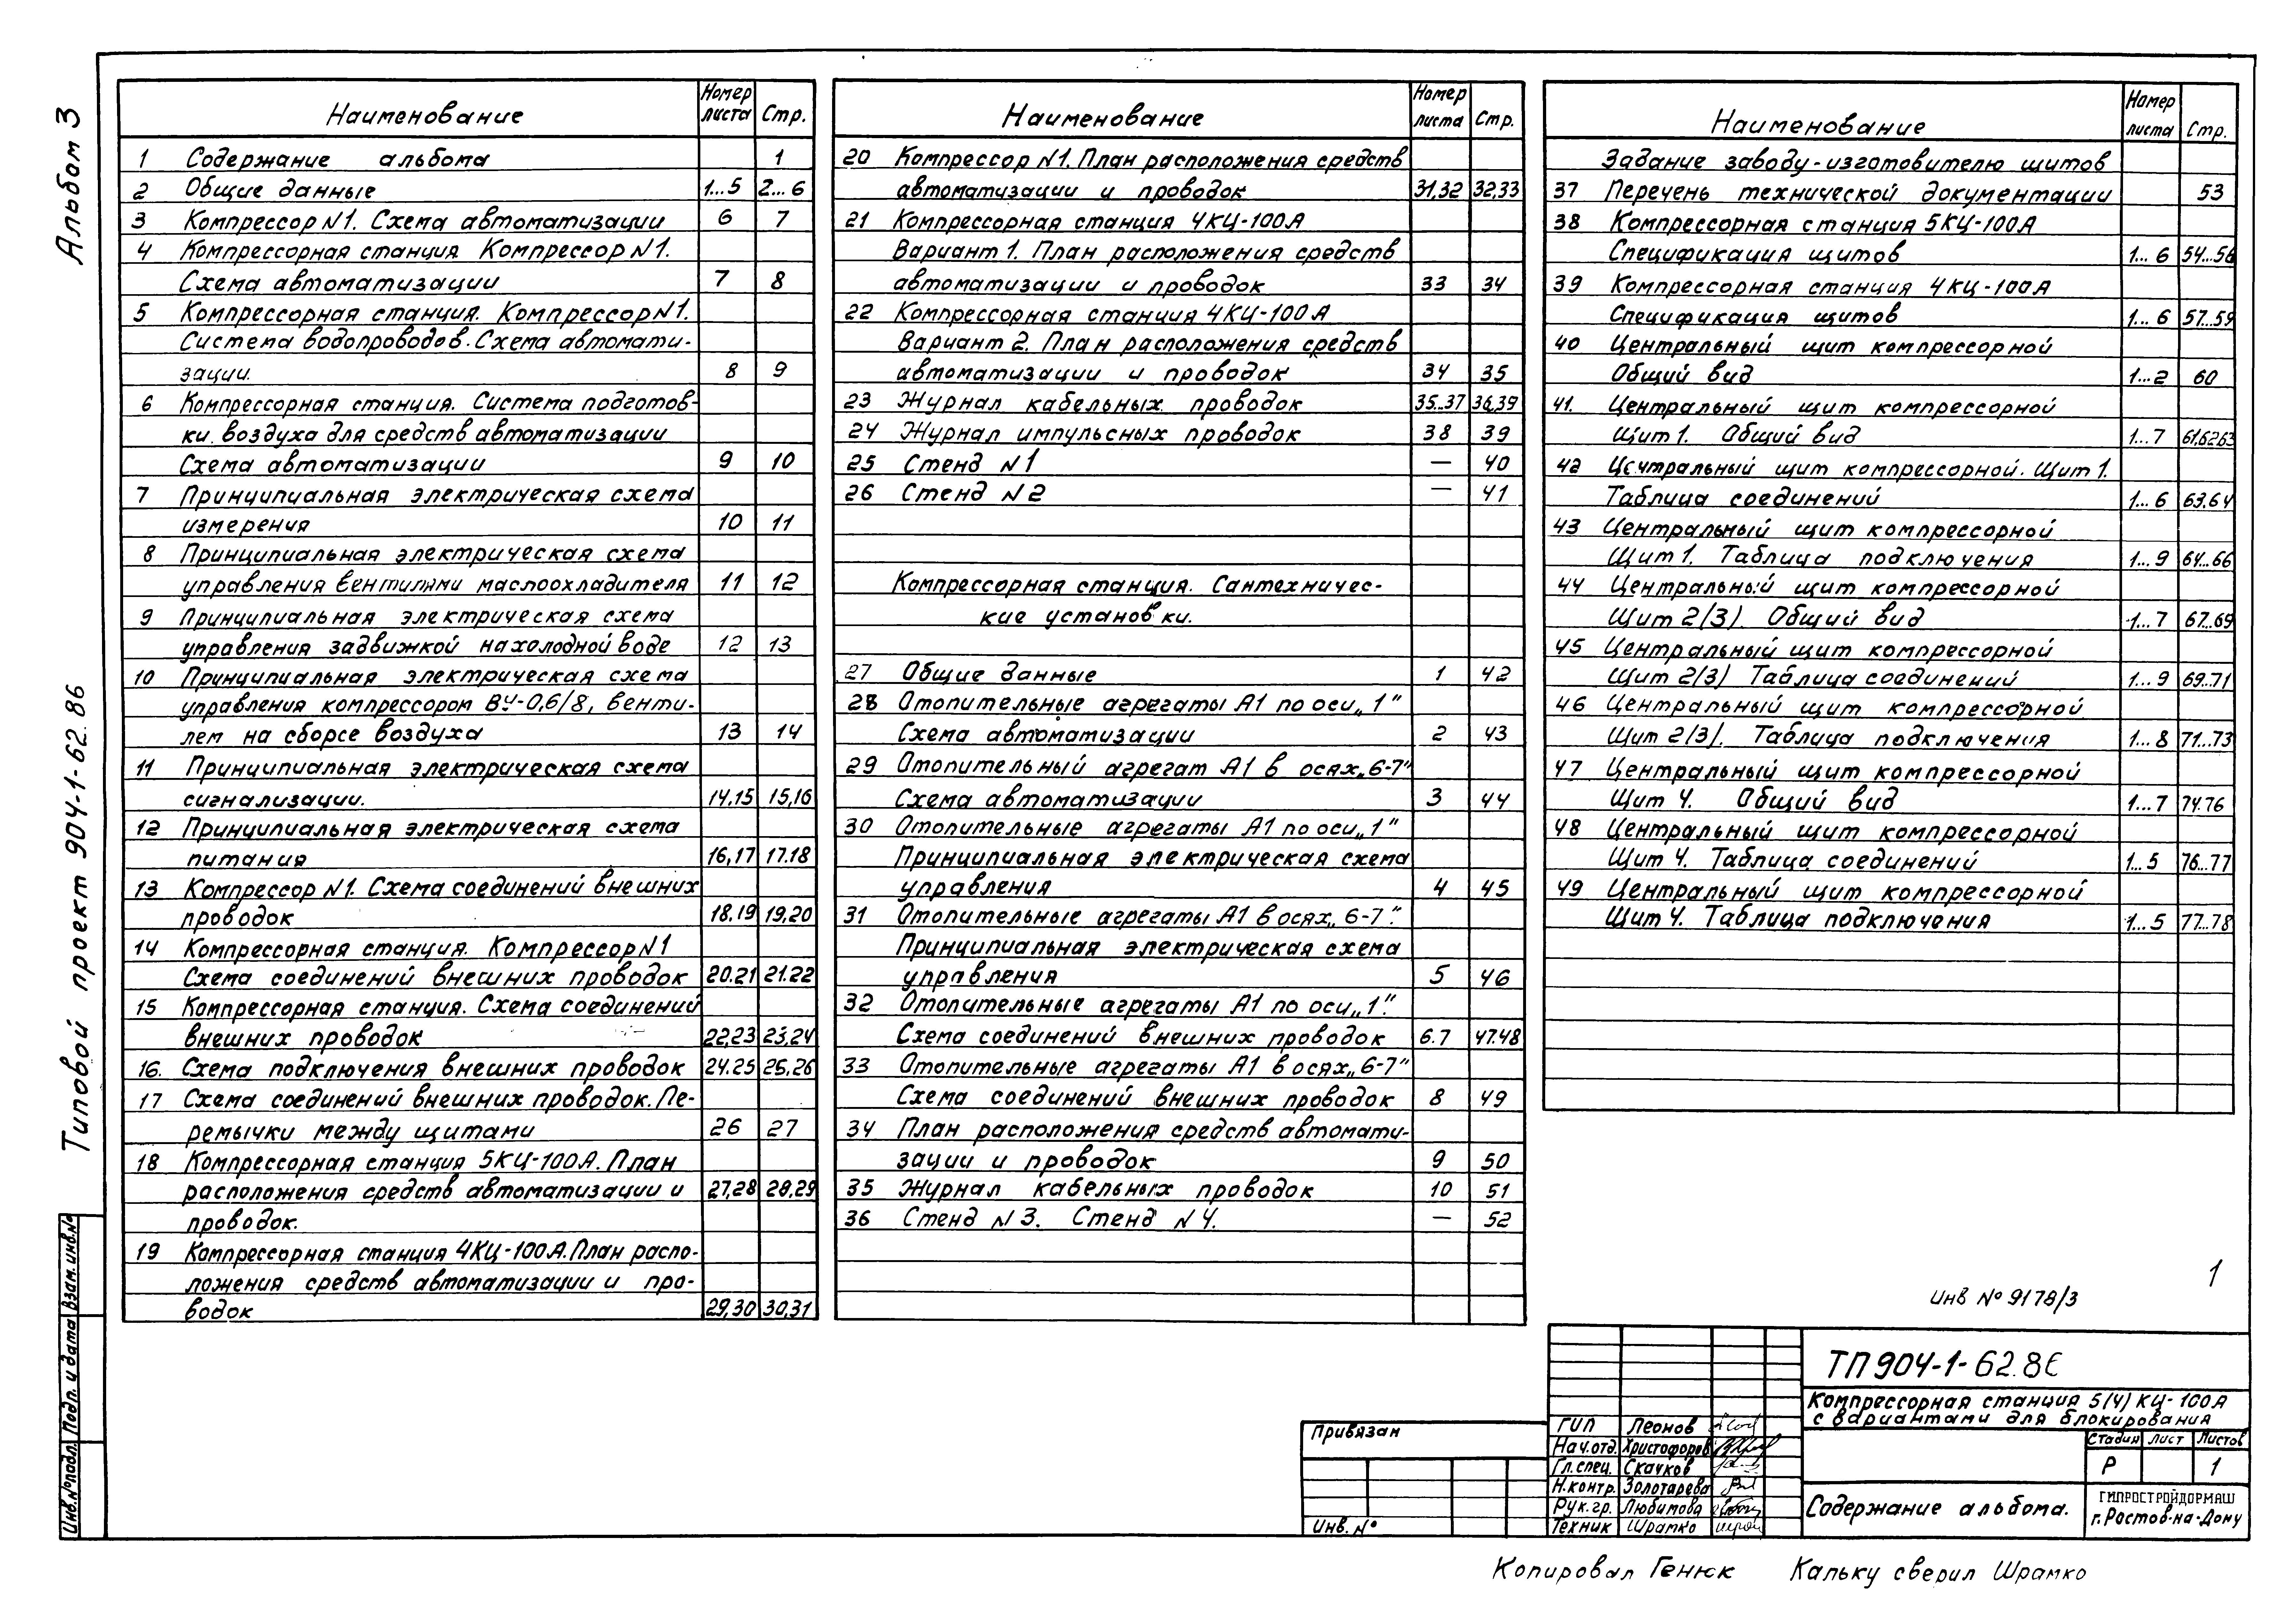 Альбом 3
Типовой проект 904-1-62.86
Наименование Номер листа Стр.
1 Содержание альбома 1
2 Общие данные 1...5 2...6
3 Компрессор N1. Схема автоматизации 6 7
4 Компрессорная станция. Компрессор N1.
Схема автоматизации 7 8
5 Компрессорная станция. Компрессор N1.
Система водопроводов. Схема автомати-
зации. 8 9
6 Компрессорная станция. Система подготов-
ки воздуха для средств автоматизации
Схема автоматизации 9 10
7 Принципиальная электрическая схема
измерения 10 11
8 Принципиальная электрическая схема
управления вентилями маслоохладителя 11 12
9 Принципиальная электрическая схема
управления задвижкой на холодной воде 12 13
10 Принципиальная электрическая схема
управления компрессором ВУ-0,6/8, венти-
лем на сборсе воздуха 13 14
11 Принципиальная электрическая схема
сигнализации. 14,15 15,16
12 Принципиальная электрическая схема
питания 16,17 17.18
13 Компрессор N1. Схема соединений внешних
проводок 18.19 19,20
14 Компрессорная станция. Компрессор N1
Схема соединений внешних проводок 20.21 21.22
15 Компрессорная станция. Схема соединений
внешних проводок 22,23 23,24
16. Схема подключения внешних проводок 24.25 25,26
17 Схема соединений внешних проводок. Пе-
ремычки между щитами 26 27
18 Компрессорная станция 5КЦ-100А. План
расположения средств автоматизации и 27,28 28,29
проводок.
19 Компрессорная станция 4КЦ-100А. План распо-
ложения средств автоматизации и про-
водок 29,30 30,31
Наименование Номер листа Стр.
20 Компрессор N1. План расположения средств
автоматизации и проводок 31,32 32,33
21 Компрессорная станция 4КЦ-100А
Вариант 1. План расположения средств
автоматизации и проводок 33 34
22 Компрессорная станция 4КЦ-100А
Вариант 2. План расположения средств
автоматизации и проводок 34 35
23 Журнал кабельных проводок 35..37 36,39
24 Журнал импульсных проводок 38 39
25 Стенд N1 — 40
26 Стенд N2 — 41
Компрессорная станция. Сантехничес-
кие установки.
27 Общие данные 1 42
28 Отопительные агрегаты А1 по оси „1"
Схема автоматизации 2 43
29 Отопительный агрегат А1 в осях „6-7"
Схема автоматизации 3 44
30 Отопительные агрегаты А1 по оси „1"
Принципиальная электрическая схема
управления 4 45
31 Отопительные агрегаты А1 в осях „6-7".
Принципиальная электрическая схема
управления 5 46
32 Отопительные агрегаты А1 по оси „1".
Схема соединений внешних проводок 6.7 47.48
33 Отопительные агрегаты А1 в осях „6-7"
Схема соединений внешних проводок 8 49
34 План расположения средств автомати-
зации и проводок 9 50
35 Журнал кабельных проводок 10 51
36 Стенд N3. Стенд N4. — 52
Наименование Номер листа Стр.
Задание заводу-изготовителю щитов
37 Перечень технической документации 53
38 Компрессорная станция 5КЦ-100А
Спецификация щитов 1...6 54...56
39 Компрессорная станция 4КЦ-100А
Спецификация щитов 1...6 57...59
40 Центральный щит компрессорной
Общий вид 1...2 60
41. Центральный щит компрессорной
Щит 1. Общий вид 1...7 61,62,63
42 Центральный щит компрессорной. Щит 1.
Таблица соединений 1...6 63.64
43 Центральный щит компрессорной
Щит 1. Таблица подключения 1...9 64...66
44 Центральный щит компрессорной
Щит 2/3). Общий вид 1...7 67...69
45 Центральный щит компрессорной
Щит 2/3) Таблица соединений 1...9 69..71
46 Центральный щит компрессорной
Щит 2/3). Таблица подключения 1...8 71...73
47 Центральный щит компрессорной
Щит 4. Общий вид 1...7 74.76
48 Центральный щит компрессорной
Щит 4. Таблица соединений 1...5 76...77
49 Центральный щит компрессорной
Щит 4. Таблица подключения 1...5 77...78
1
Инв № 9178/3
ТП 904-1-62.86
Компрессорная станция 5(4) КЦ-100А
с вариантами для блокирования
Стадия Лист Листов
Р 1
Содержание альбома.
ГИПРОСТРОЙДОРМАШ
г. Ростов-на-Дону
ГИП Леонов
Нач.отд. Христофоров
Гл.спец. Скачков
Н.контр. Золотарева
Рук.гр. Любимова
Техник Шрамко
Привязан
Инв. №
Инв.№подл. Подп. и дата Взам.инв.№
Копировал Генюк Кальку сверил Шрамко